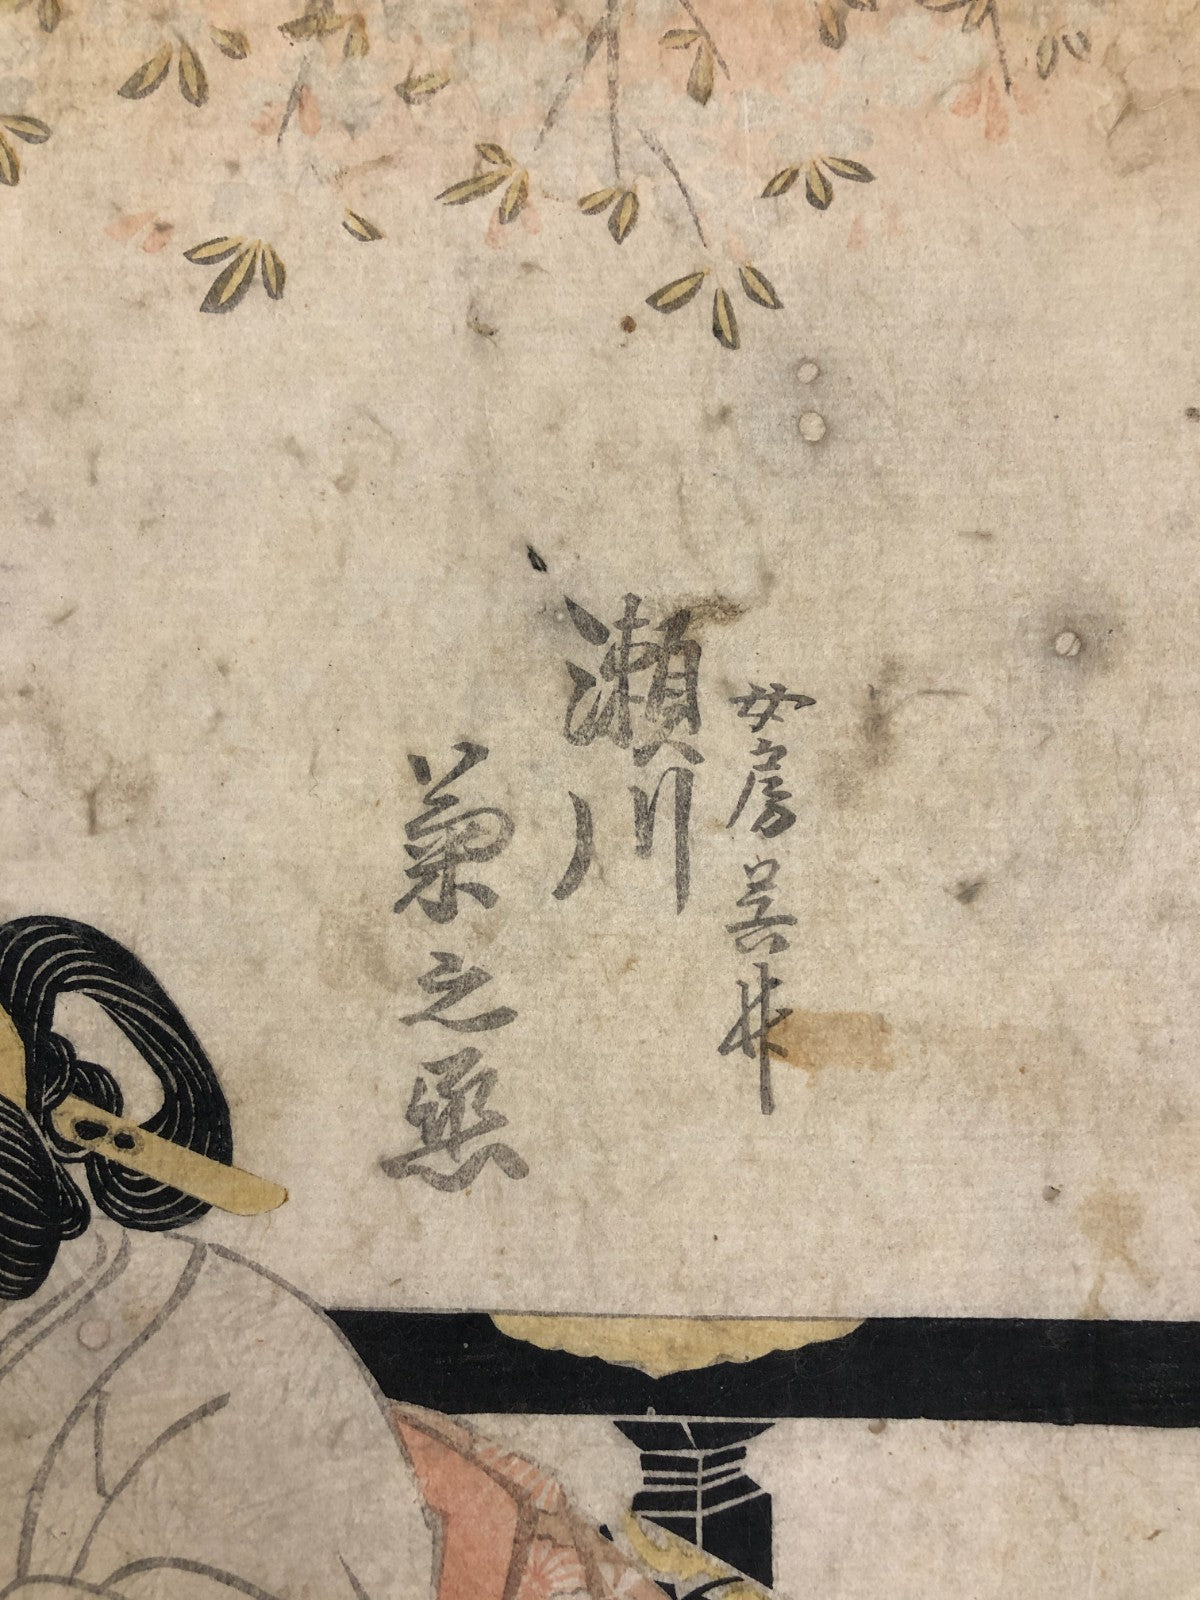 女房呉井
瀬川
菊之丞